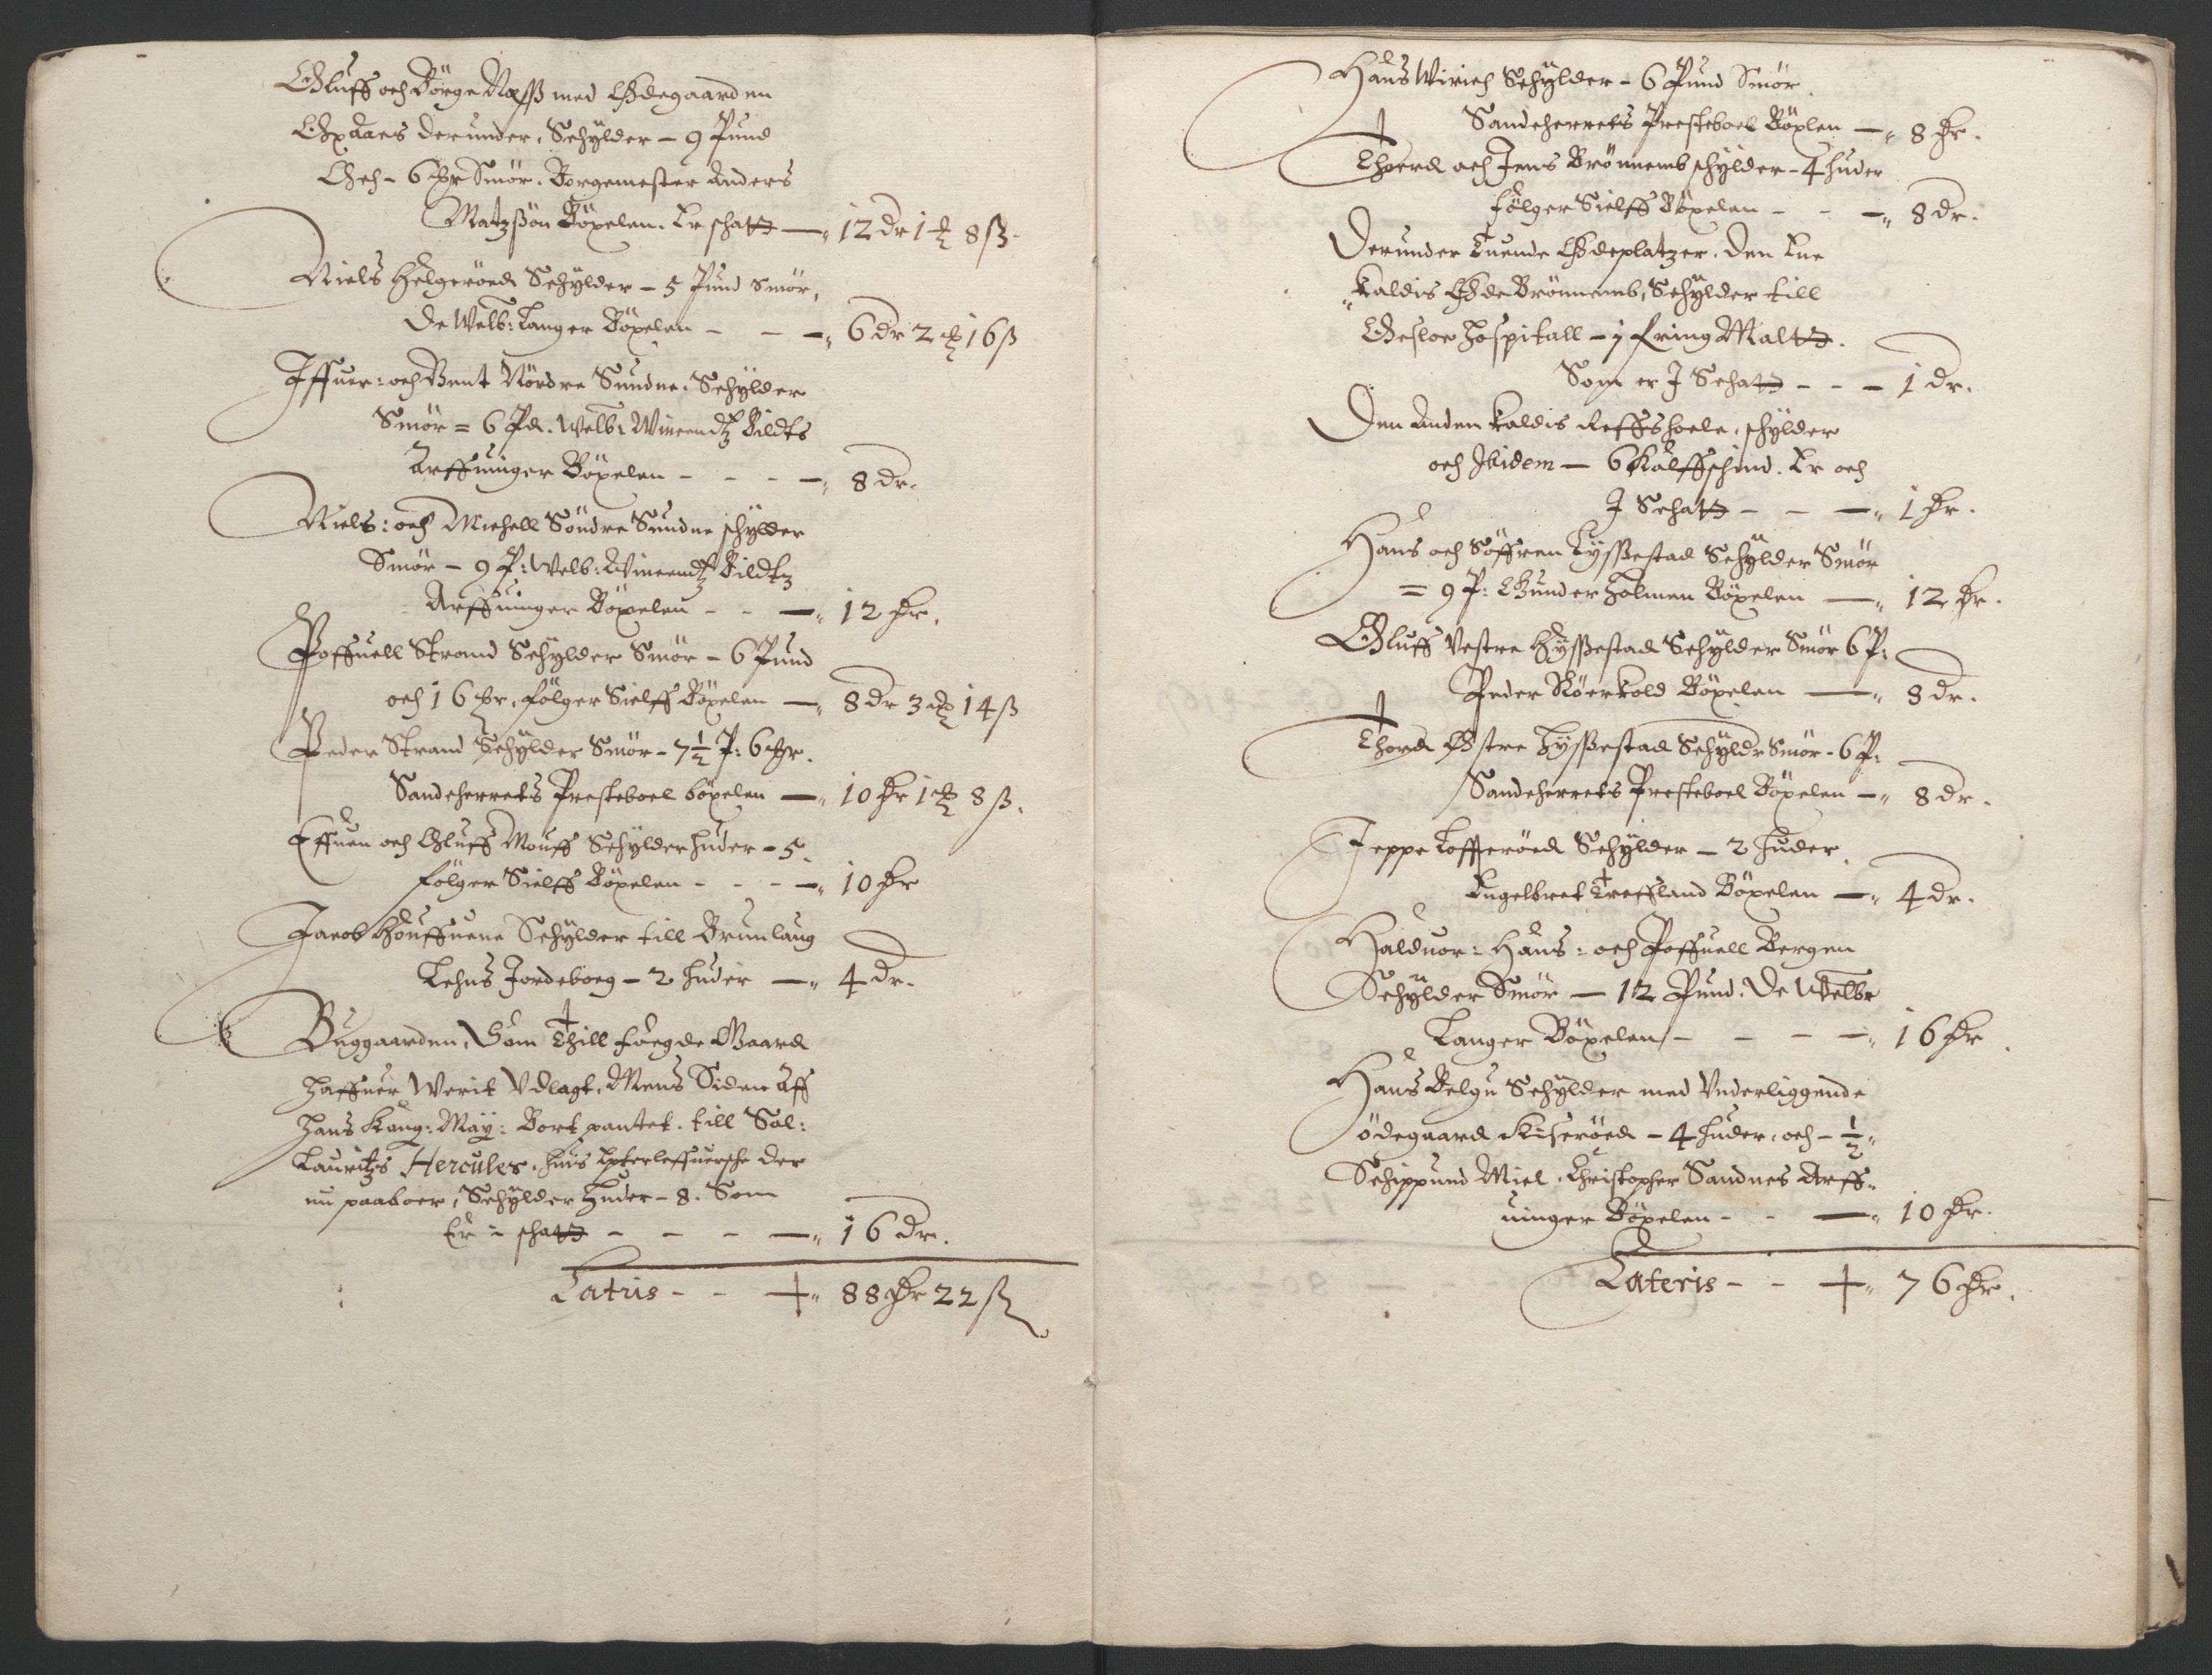 Oluff och Börge Næss med Ødegaarden
derunder, Schylder - 9 Pund
Och - 6 mrk Smör. Borgemester Anders
Matzsön Böxelen. Er schatt — 12 dr 1 ort 8 ß.
Niels Helgeröed Schylder - 5 Pund Smör,
De Welb: Langer Böxelen - - — 6 dr 2 ort 16 ß
Iffuer: och Bent Nordre Sundne. Schylder
Smör = 6 Pd. Welb: Wincendtz Bildts
Arffuinger Böxelen - - - — 8 dr.
Niels: och Michell Söndre Sundne schylder
Smör - 9 P: Welb: Wincendtz Bildtz
Arffuinger Böxelen - - — 12 dr.
Poffuell Strand Schylder Smör - 6 Pund
och 16 mrk, følger Sielff Böxelen — 8 dr 3 ort 14 ß
Peder Strand Schylder Smör - 7½ P: 6 mrk.
Sandeherrets Presteboel böxelen — 10 dr 1 ort 8 ß.
Effuen och Oluff Mouff Schylder huder - 5.
følger Sielff Böxelen - - - — 10 dr
Jacob Houffuene Schylder till Brunlaug
Lehns Jordeboeg - 2 huder — 4 dr.
Buggaarden, Som Thill foegde Gaard
haffuer Werit Vdlagt, Mens Siden aff
hans Kong: May: Bort pantet. till Sal:
Lauritzs Hercules. huis Epterleffuersche der
nu paaboer, Schylder Huder - 8. Som
Er i schatt - - - — 16 dr.
Latus - - 88 dr 22 ß
Hans Wirich Schylder - 6 Pund Smör.
Sandeherrets Presteboel Böxlen — 8 dr.
Thoerd och Jens Brönnemb schylder - 4 huder
følger Sielff Böxelen - - — 8 dr.
Derunder Tuende Ødeplatzer. Den Ene
kaldis Øde Brönnemb, Schylder till
Opsloe Hospitall - j fring Maltt.
Som er J Schatt - - - 1 dr.
Den anden kaldis Reffshoele, schylder
och Ibidem — 6 Kalffschind. Er och
J Schatt - - — 1 dr.
Hans och Söffren Hyssestad Schylder Smör
= 9 P: Gunder Holmen Böxelen — 12 dr.
Oluff Vestre Hyssestad Schylder Smör 6 P:
Peder Röerkold Böxelen — 8 dr.
Thord Østre Hyssestad Schyldr Smör - 6 P:
Sandeherrets Presteboel Böxelen — 8 dr.
Jeppe Lofferöed Schylder — 2 Huder.
Engelbret Treffland Böxelen — 4 dr.
Halduor: Hans: och Poffuell Bergen
Schylder Smör — 12 Pund. De Welbr
Langer Böxelen - - - — 16 dr
Hans Belgn Schylder med Vnderliggende
ödegaard Kiseröed - 4 huder, och - ½
Schippund Miel. Christopher Sandnes Arff-
uinger Böxelen - - — 10 dr.
Lateris - - 76 dr.